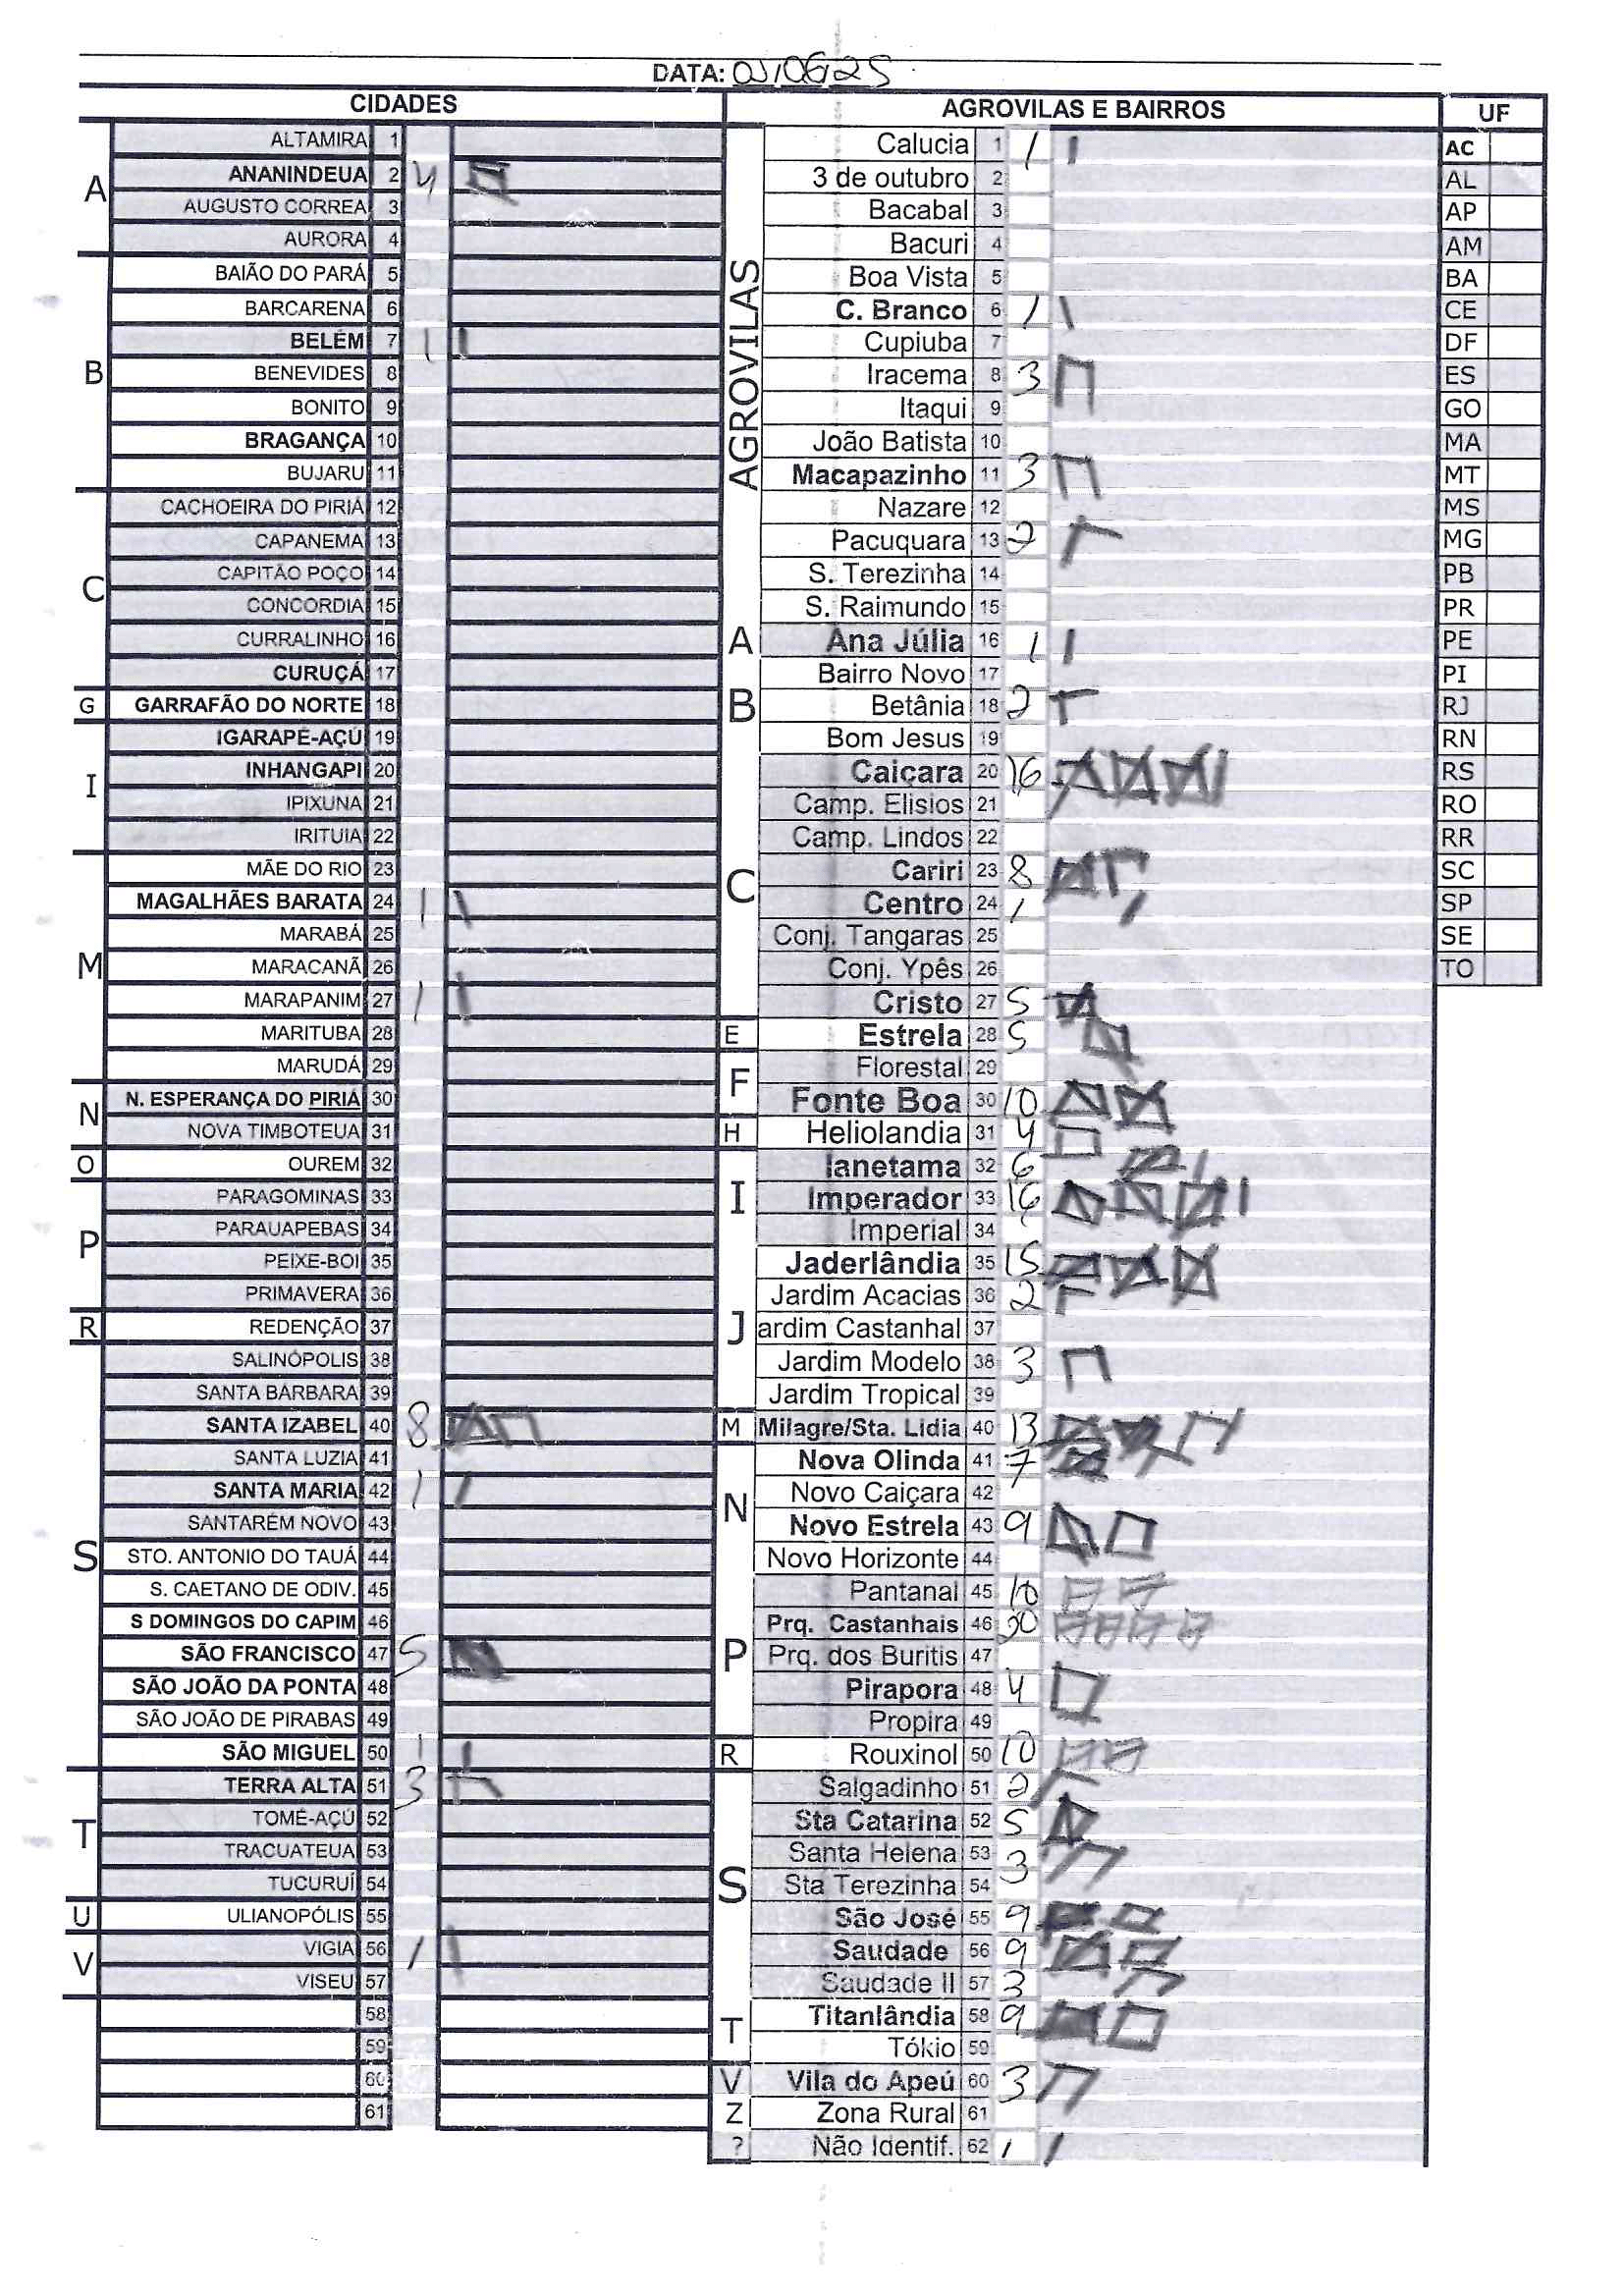 DATA: 01/06/25
CIDADES
A
ALTAMIRA 1
ANANINDEUA 2 4
AUGUSTO CORREA 3
AURORA 4
B
BAIÃO DO PARÁ 5
BARCARENA 6
BELÉM 7 1
BENEVIDES 8
BONITO 9
BRAGANÇA 10
BUJARU 11
C
CACHOEIRA DO PIRIÁ 12
CAPANEMA 13
CAPITÃO POÇO 14
CONCORDIA 15
CURRALINHO 16
CURUÇÁ 17
G
GARRAFÃO DO NORTE 18
I
IGARAPÉ-AÇÚ 19
INHANGAPI 20
IPIXUNA 21
IRITUIA 22
M
MÃE DO RIO 23
MAGALHÃES BARATA 24 1
MARABÁ 25
MARACANÃ 26
MARAPANIM 27 1
MARITUBA 28
MARUDÁ 29
N
N. ESPERANÇA DO PIRIÁ 30
NOVA TIMBOTEUA 31
O
OUREM 32
P
PARAGOMINAS 33
PARAUAPEBAS 34
PEIXE-BOI 35
PRIMAVERA 36
R
REDENÇÃO 37
S
SALINÓPOLIS 38
SANTA BÁRBARA 39
SANTA IZABEL 40 8
SANTA LUZIA 41
SANTA MARIA 42 1
SANTARÉM NOVO 43
STO. ANTONIO DO TAUÁ 44
S. CAETANO DE ODIV. 45
S DOMINGOS DO CAPIM 46
SÃO FRANCISCO 47 5
SÃO JOÃO DA PONTA 48
SÃO JOÃO DE PIRABAS 49
SÃO MIGUEL 50 1
T
TERRA ALTA 51 3
TOMÉ-AÇÚ 52
TRACUATEUA 53
TUCURUÍ 54
U
ULIANOPÓLIS 55
V
VIGIA 56 1
VISEU 57
58
59
60
61
AGROVILAS E BAIRROS
AGROVILAS
Calucia 1 1
3 de outubro 2
Bacabal 3
Bacuri 4
Boa Vista 5
C. Branco 6 1
Cupiuba 7
Iracema 8 3
Itaqui 9
João Batista 10
Macapazinho 11 3
Nazare 12
Pacuquara 13 2
S. Terezinha 14
S. Raimundo 15
A
Ana Júlia 16 1
B
Bairro Novo 17
Betânia 18 2
Bom Jesus 19
C
Caiçara 20 16
Camp. Elisios 21
Camp. Lindos 22
Cariri 23 8
Centro 24 1
Conj. Tangaras 25
Conj. Ypês 26
Cristo 27 5
E
Estrela 28 5
F
Florestal 29
Fonte Boa 30 10
H
Heliolandia 31 4
I
Ianetama 32 6
Imperador 33 16
Imperial 34
J
Jaderlândia 35 15
Jardim Acacias 36 2
ardim Castanhal 37
Jardim Modelo 38 3
Jardim Tropical 39
M
Milagre/Sta. Lidia 40 13
N
Nova Olinda 41 7
Novo Caiçara 42
Novo Estrela 43 9
Novo Horizonte 44
P
Pantanal 45 10
Prq. Castanhais 46 20
Prq. dos Buritis 47
Pirapora 48 4
Propira 49
R
Rouxinol 50 10
S
Salgadinho 51 2
Sta Catarina 52 5
Santa Helena 53 3
Sta Terezinha 54
São José 55 9
Saudade 56 9
Saudade II 57 3
T
Titanlândia 58 9
Tókio 59
V
Vila do Apeú 60 3
Z
Zona Rural 61
?
Não Identif. 62 1
UF
AC
AL
AP
AM
BA
CE
DF
ES
GO
MA
MT
MS
MG
PB
PR
PE
PI
RJ
RN
RS
RO
RR
SC
SP
SE
TO